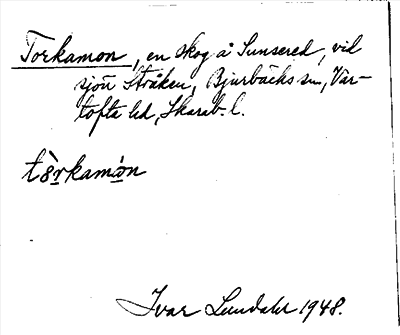 Torkamon, en skog å Sunsered, vid
sjön Stråken, Bjurbäcks sn, Var-
tofta hd, Skarab. l.
Ivar Lundahl 1948.